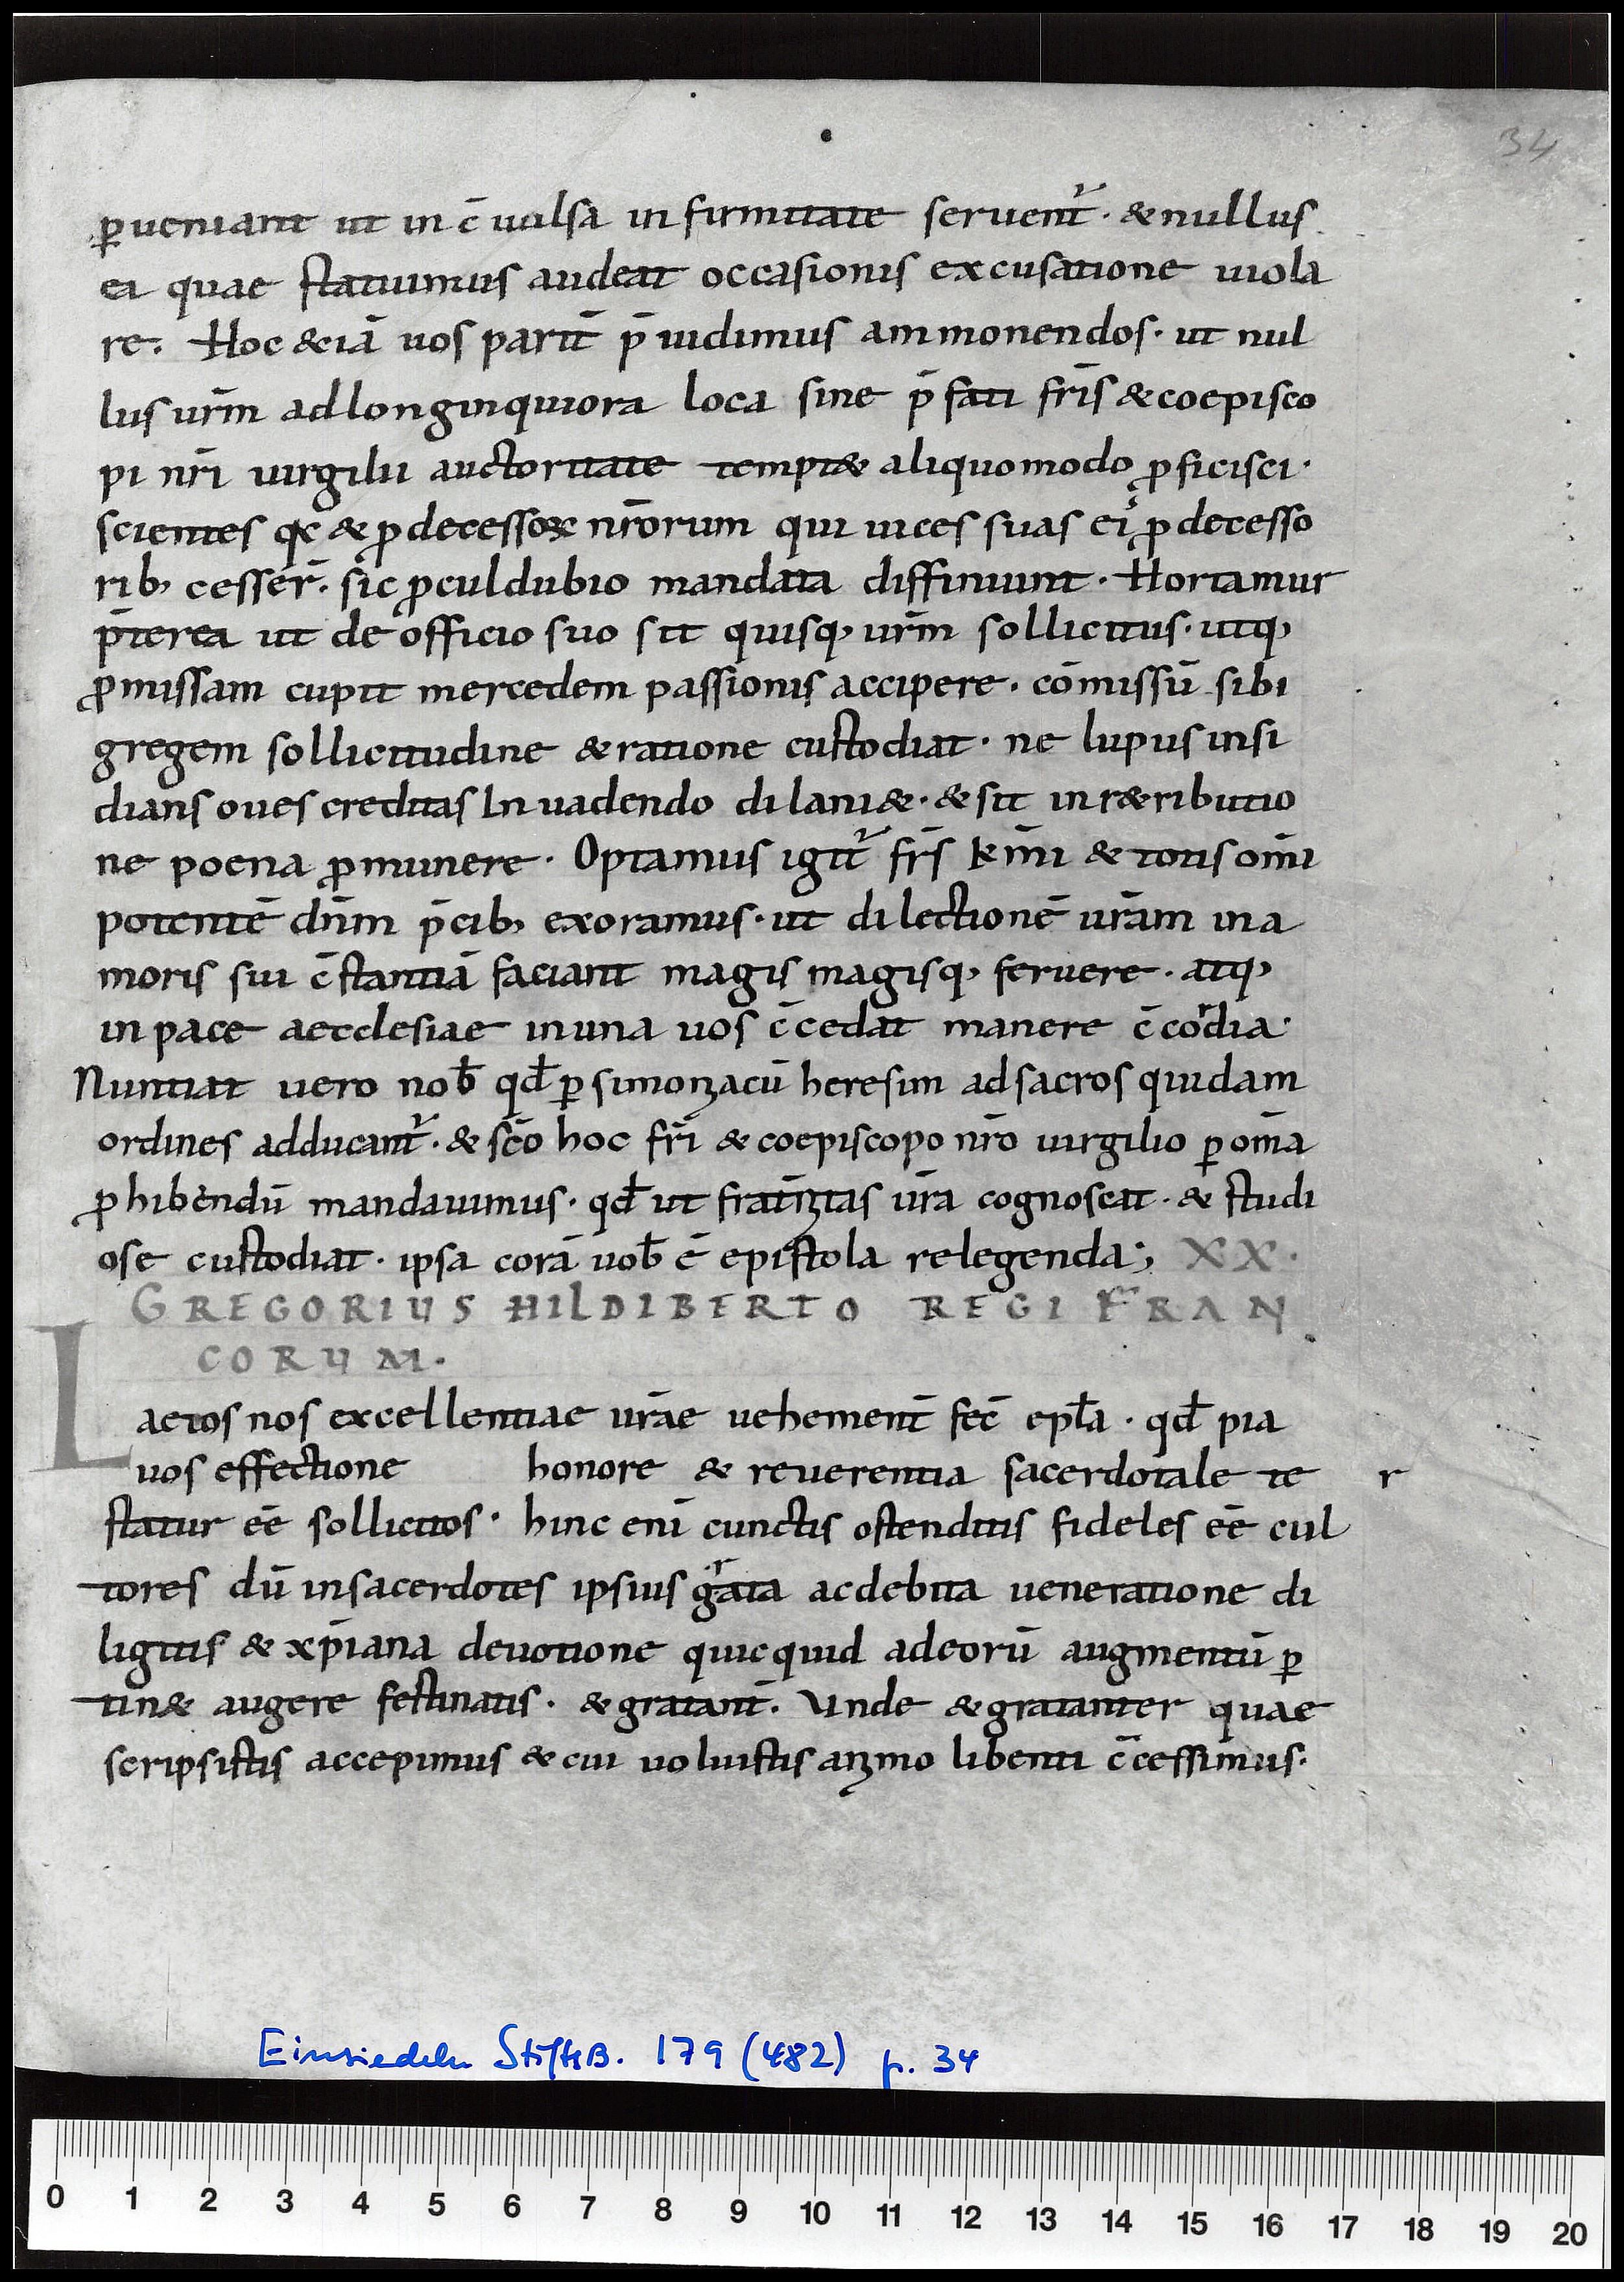 34
ꝑueniant ut in c̄ uulsa in firmitate seruent᷑ · & nullus
ei quae statuimus audeat occasionis excusatione uiola
re. Hoc &iā uos parit̄ p̄ uidimus ammonendos · ut nul
lus ur̄m ad longinquiora loca sine p̄ fati fr̄is & coepisco
pi nr̄i uirgilii auctoritate tempt& aliquomodo ꝓficisci ·
scientes qc & p decessoꝝ nr̄orum qui uices suas ei᷑ p decesso
rib; cesser̄ · sic ꝓculdubio mandata diffiniunt · Hortamur
p̄terea ut de officio suo sit quisq; ur̄m sollicitus · utq;
ꝓmissam cupit mercedem passionis accipere · cōmissū sibi
gregem sollicitudine & ratione custodiat · ne lupus insi
dians oues creditas Inuadendo dilani& · & sit in r&ributio
ne poena ꝓ munere · Optamus igit᷑ fr̄s km̄i & totis om̄i
potentē dn̄m p̄cib; exoramus · ut dilectionē ur̄am in a
moris sui c̄stantiā faciant magis magisq; feruere · atq;
in pace aecclesiae in una uos c̄cedat manere c̄cordia ·
Nuntiat uero nob̄ qd̄ ꝑ simonꝫacū heresim ad sacros quidam
ordines adducant᷑ · & sc̄o hoc fr̄i & coepiscopo nr̄o uirgilio ꝑ om̄a
ꝓhibendū mandauimus · qd̄ ut frat̄nꝫtas ur̄a cognoscat · & studi
ose custodiat · ipsa corā uob̄ ē epistola relegenda; XX ·
GREGORIUS HILDIBERTO REGI FRAN
CORUM ·
Laetos nos excellentiae ur̄ae uehement̄ fec̄ epl̄a · qd̄ pia
uos effectione honore & reuerentia sacerdotale te r
statur eē sollicitos · hinc eni̅ cunctis ostenditis fideles eē cul
tores dū in sacerdotes ipsius grata ac debita ueneratione di
ligitis & xp̄iana deuotione quicquid ad eorū augmentū ꝑ
tin& augere festinatis · & gratant̄ · Unde & gratanter quae
scripsistis accepimus & cui uoluistis anꝫmo libenti c̄cessimus ·
Einsiedeln StiftsB. 179 (482) p. 34
0 1 2 3 4 5 6 7 8 9 10 11 12 13 14 15 16 17 18 19 20